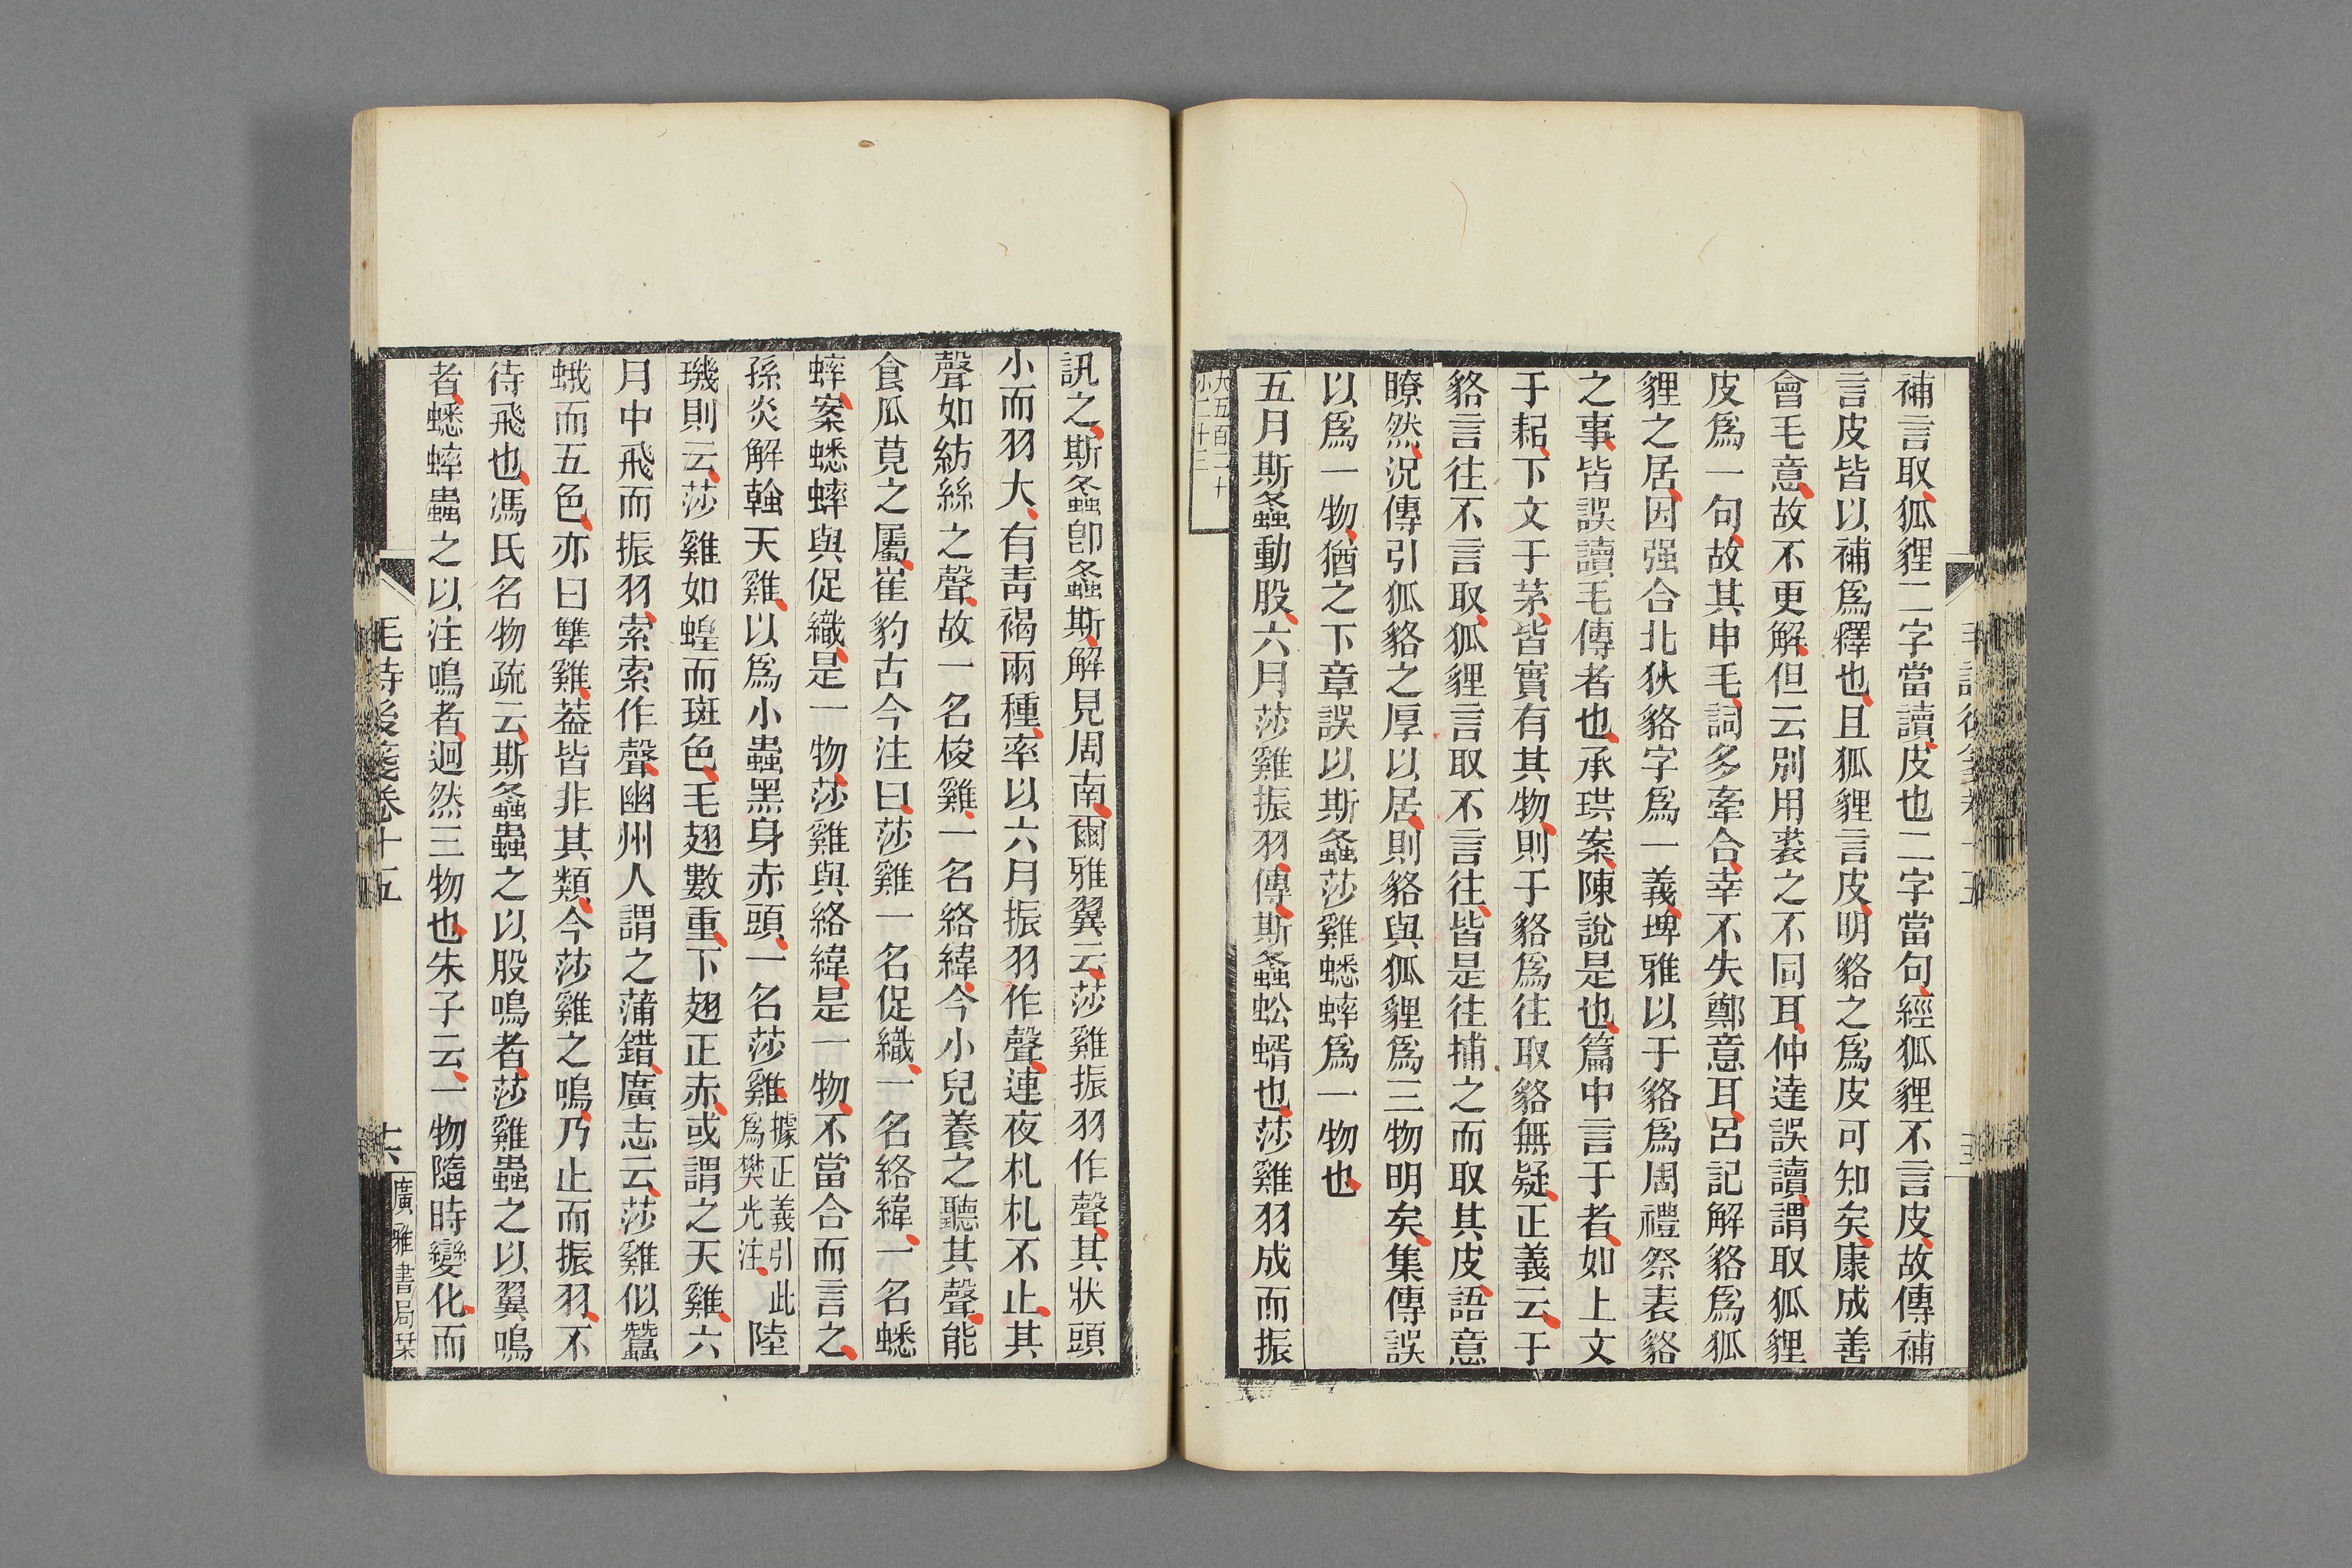 補言取狐貍二字當讀皮也二字當句經狐貍不言皮故傳補
言皮皆以補爲釋也且狐貍言皮明貉之爲皮可知矣康成善
會毛意故不更解但云別用裘之不同耳仲達誤讀謂取狐貍
皮爲一句故其申毛詞多牽合幸不失鄭意耳呂記解貉爲狐
貍之居因强合北狄貉字爲一義埤雅以于貉爲周禮祭表貉
之事皆誤讀毛傳者也承珙案陳說是也篇中言于者如上文
于耜下文于茅皆實有其物則于貉爲往取貉無疑正義云于
貉言往不言取狐貍言取不言往皆是往捕之而取其皮語意
瞭然況傳引狐貉之厚以居則貉與狐貍爲三物明矣集傳誤
以爲一物猶之下章誤以斯螽莎雞蟋蟀爲一物也
五月斯螽動股六月莎雞振羽傳斯螽蚣蝑也莎雞羽成而振
大五百二十
小二十三
訊之斯螽卽螽斯解見周南爾雅翼云莎雞振羽作聲其狀頭
小而羽大有靑褐兩種率以六月振羽作聲連夜札札不止其
聲如紡絲之聲故一名梭雞一名絡緯今小兒養之聽其聲能
食瓜莧之屬崔豹古今注曰莎雞一名促織一名絡緯一名蟋
蟀案蟋蟀與促織是一物莎雞與絡緯是一物不當合而言之
孫炎解螒天雞以爲小蟲黑身赤頭一名莎雞據正義引此爲樊光注陸
璣則云莎雞如蝗而斑色毛翅數重下翅正赤或謂之天雞六
月中飛而振羽索索作聲幽州人謂之蒲錯廣志云莎雞似蠶
蛾而五色亦曰犨雞葢皆非其類今莎雞之鳴乃止而振羽不
待飛也馮氏名物疏云斯螽蟲之以股鳴者莎雞蟲之以翼鳴
者蟋蟀蟲之以注鳴者迥然三物也朱子云一物隨時變化而
毛詩後箋卷十五
十六
廣雅書局栞